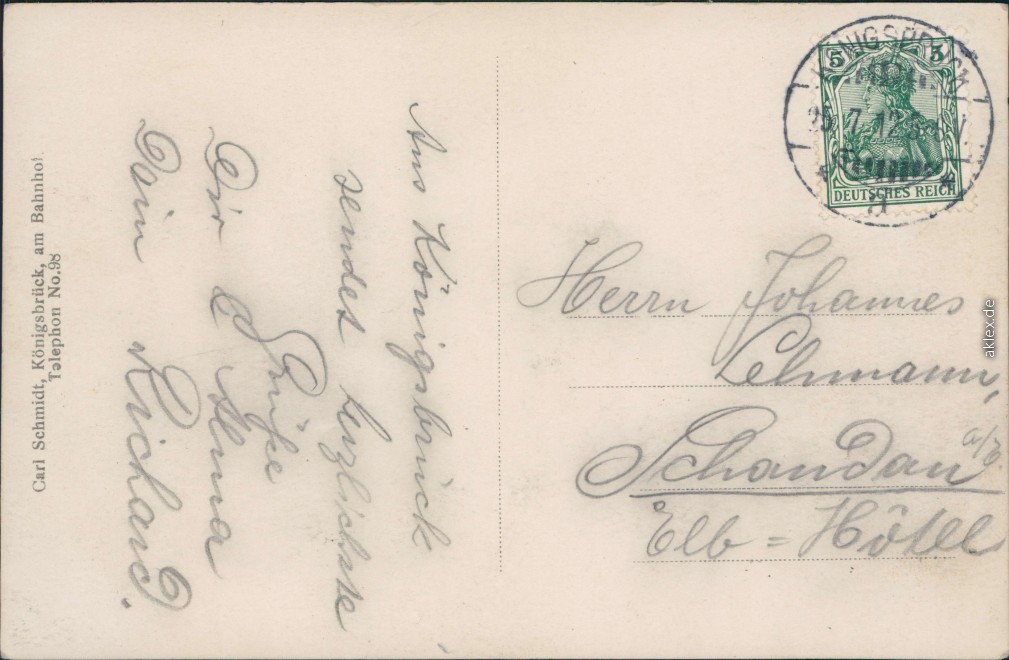 Carl Schmidt, Königsbrück, am Bahnhof.
Telephon No. 98
Aus Königsbrück
sendet herzlichste
Grüße
Dir &
Dein Richard.
KÖNIGSBRÜCK
7. 12
a
5 5
DEUTSCHES REICH
Herrn Johannes
Lehmann,
Schandau a/E
Elb = Hôtel
aklex.de